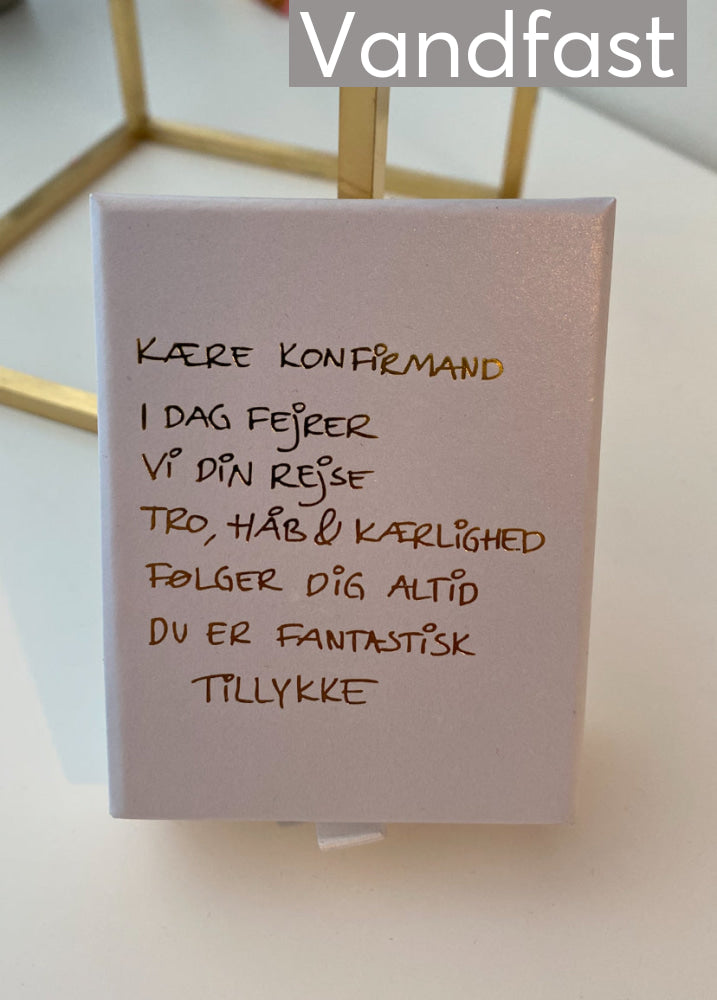 Vandfast
KÆRE KONFIRMAND
I DAG FEJRER
VI DIN REJSE
TRO, HÅB & KÆRLIGHED
FØLGER DIG ALTID
DU ER FANTASTISK
TILLYKKE